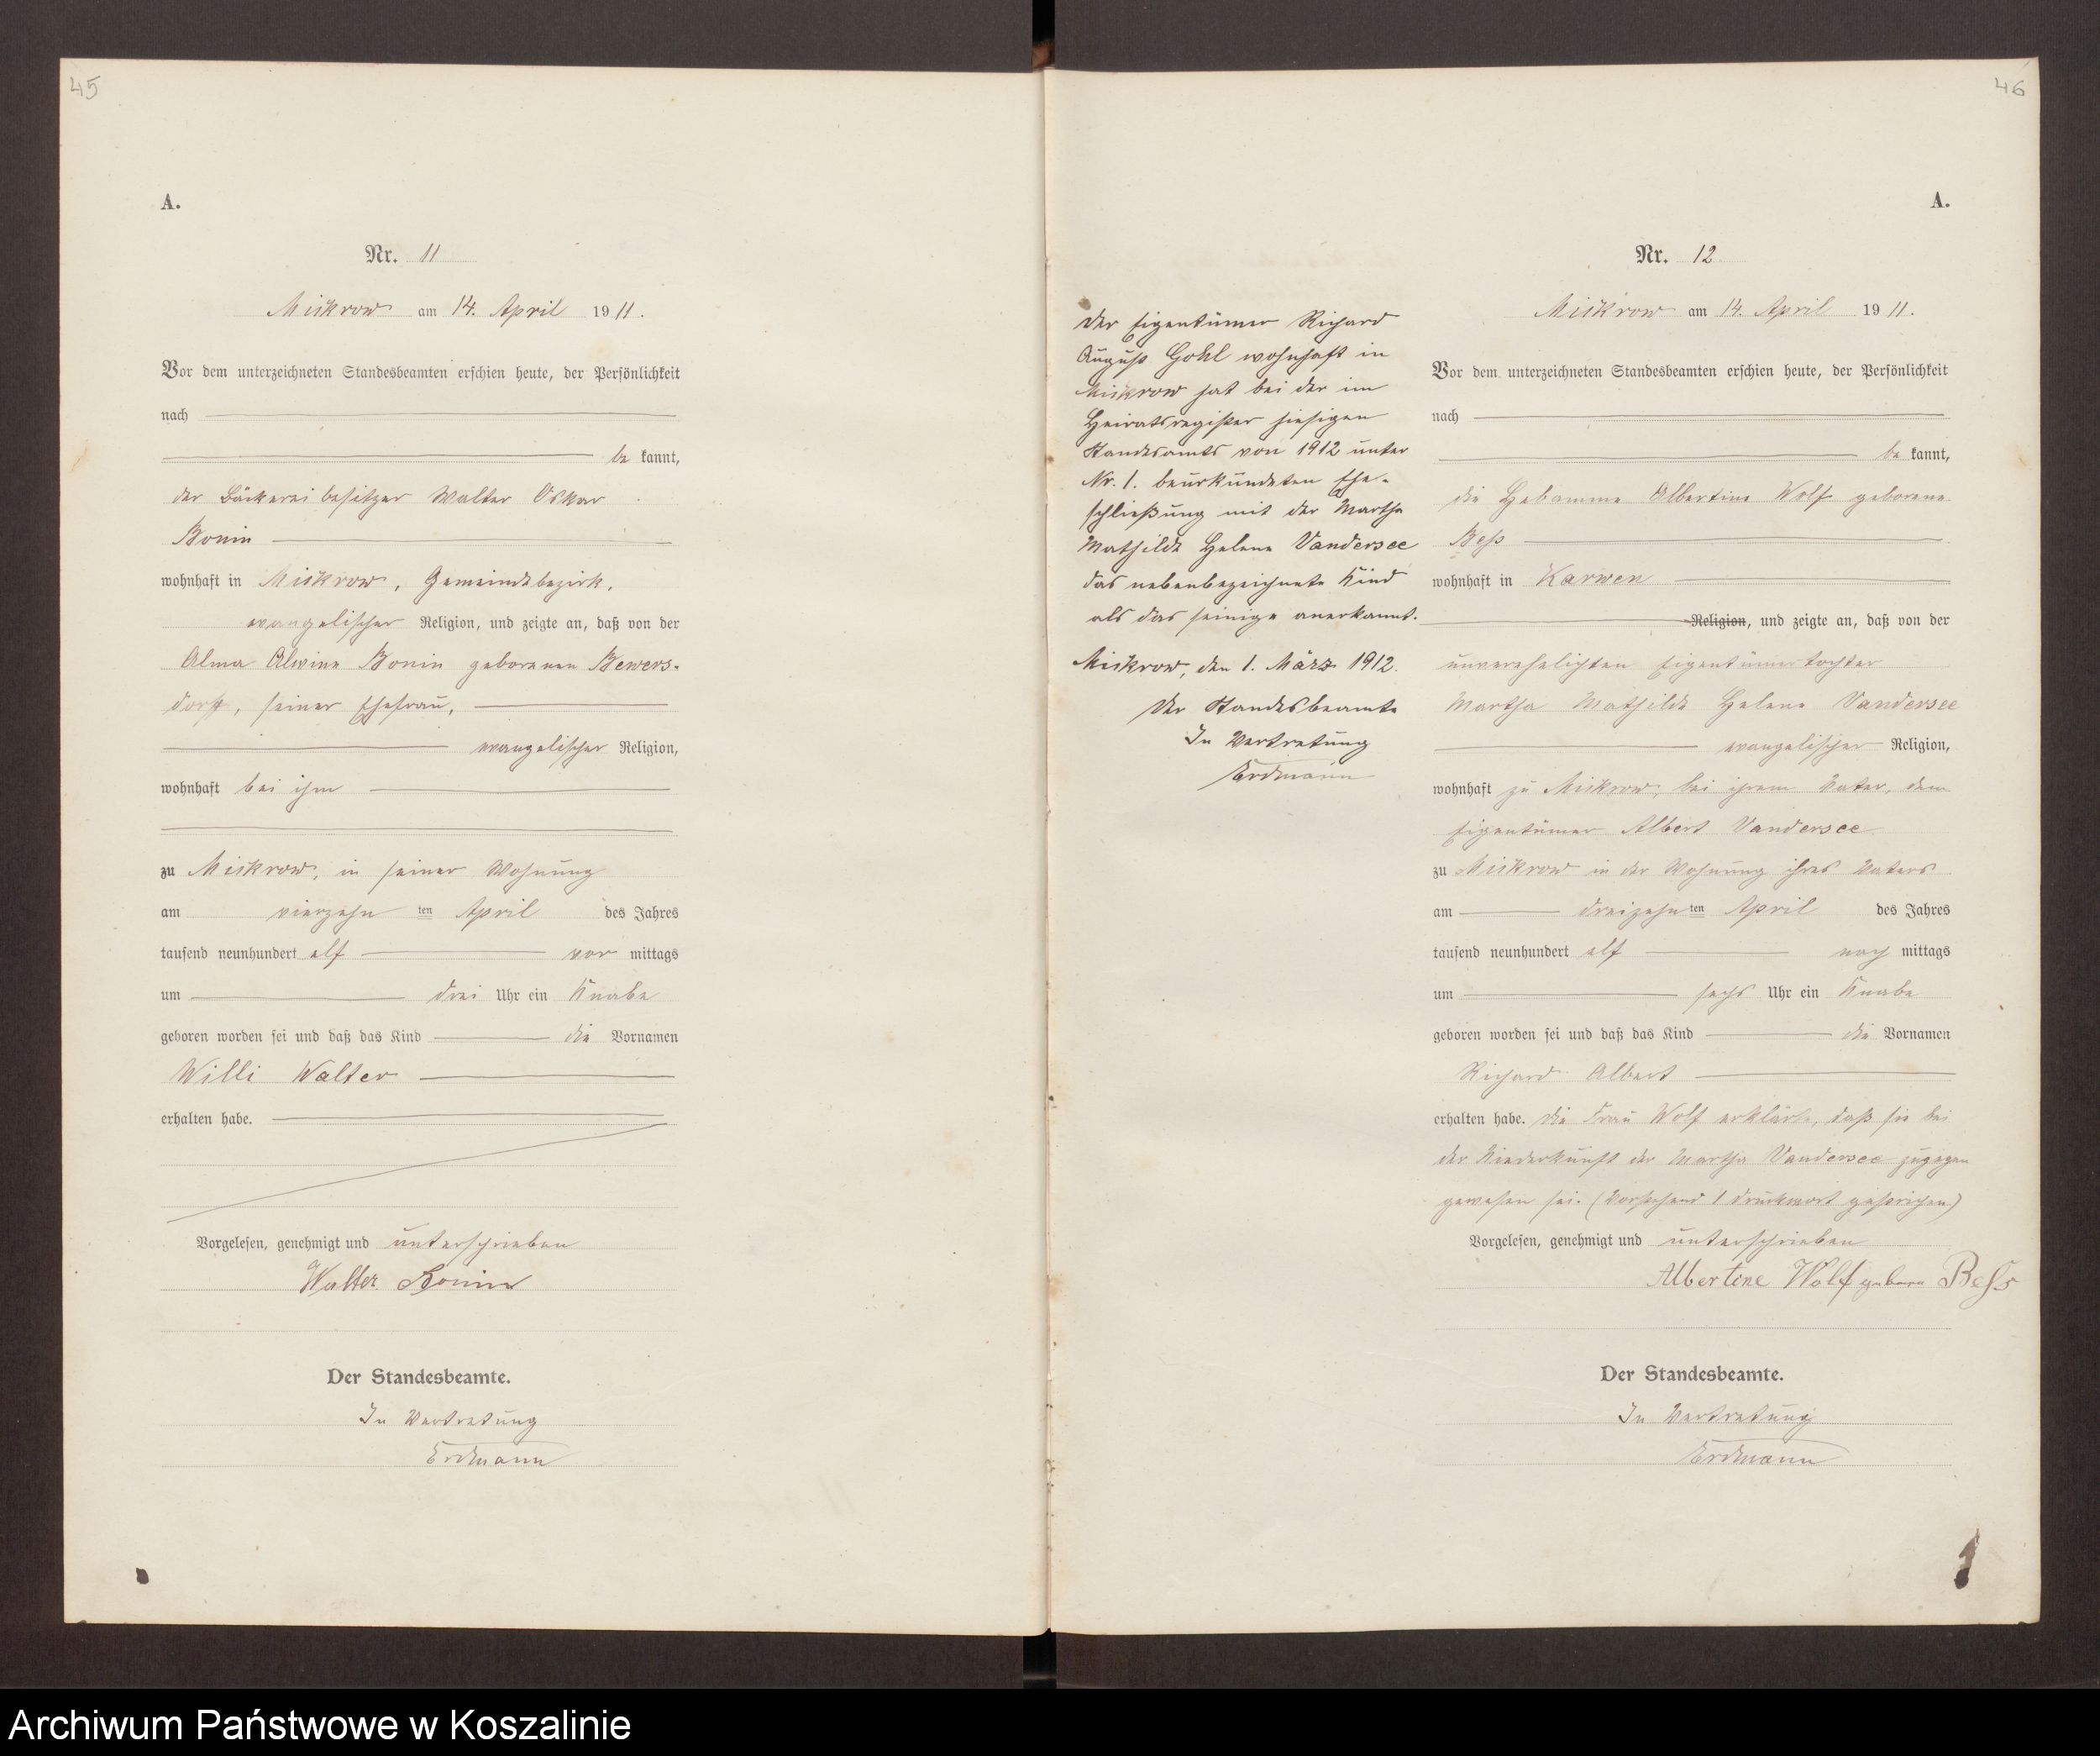 45
A.
Nr. 11
Mickrow am 14. April 1911.
Vor dem unterzeichneten Standesbeamten erschien heute, der Persönlichkeit
nach
be kannt,
der Bäckereibesitzer Walter Oskar
Bonin
wohnhaft in Mickrow, Gemeindebezirk,
evangelischer Religion, und zeigte an, daß von der
Alma Alwine Bonin geborenen Bewers-
dorff, seiner Ehefrau,
evangelischer Religion,
wohnhaft bei ihm
zu Mickrow, in seiner Wohnung
am vierzehn ten April des Jahres
tausend neunhundert elf vor mittags
um drei Uhr ein Knabe
geboren worden sei und daß das Kind die Vornamen
Willi Walter
erhalten habe.
Vorgelesen, genehmigt und unterschrieben
Walter Bonin
Der Standesbeamte.
In Vertretung
Erdmann
46
A.
Nr. 12
Mickrow am 14. April 1911.
Der Eigentümer Richard
August Gohl wohnhaft in
Mickrow hat bei der im
Heiratsregister hiesigen
Standesamts von 1912 unter
Nr. 1. beurkundeten Ehe-
schließung mit der Martha
Mathilde Helene Vandersee
das nebenbezeichnete Kind
als das seinige anerkannt.
Mickrow, den 1. März 1912.
Der Standesbeamte
In Vertretung
Erdmann
Vor dem unterzeichneten Standesbeamten erschien heute, der Persönlichkeit
nach
be kannt,
die Hebamme Albertine Wolf geborene
Beß
wohnhaft in Karwen
Religion, und zeigte an, daß von der
unverehelichten Eigentümertochter
Martha Mathilde Helene Vandersee
evangelischer Religion,
wohnhaft zu Mickrow, bei ihrem Vater, dem
Eigentümer Albert Vandersee
zu Mickrow in der Wohnung ihres Vaters
am dreizehn ten April des Jahres
tausend neunhundert elf nach mittags
um sechs Uhr ein Knabe
geboren worden sei und daß das Kind die Vornamen
Richard Albert
erhalten habe. Die Frau Wolf erklärte, daß sie bei
der Niederkunft der Martha Vandersee zugegen
gewesen sei. (Vorstehend 1 Druckwort gestrichen)
Vorgelesen, genehmigt und unterschrieben
Albertine Wolf geborn Beß
Der Standesbeamte.
In Vertretung
Erdmann
Archiwum Państwowe w Koszalinie